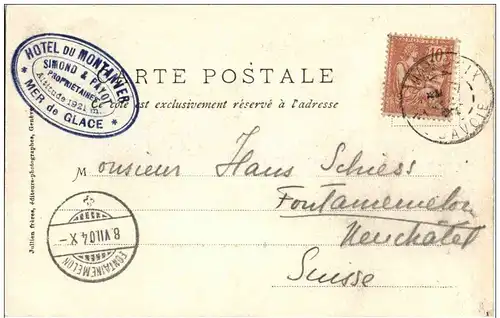 HOTEL DU MONTANVER
SIMOND & PAYOT
PROPRIETAIRES
Altitude 1921 m.
* MER DE GLACE *
CARTE POSTALE
Ce côté est exclusivement réservé à l'adresse
10
SAVOIE
Jullien frères, éditeurs-photographes, Genève
Monsieur Hans Schiess
Fontainemelon
Neuchâtel
Suisse
8.VII.04 X-
FONTAINEMELON